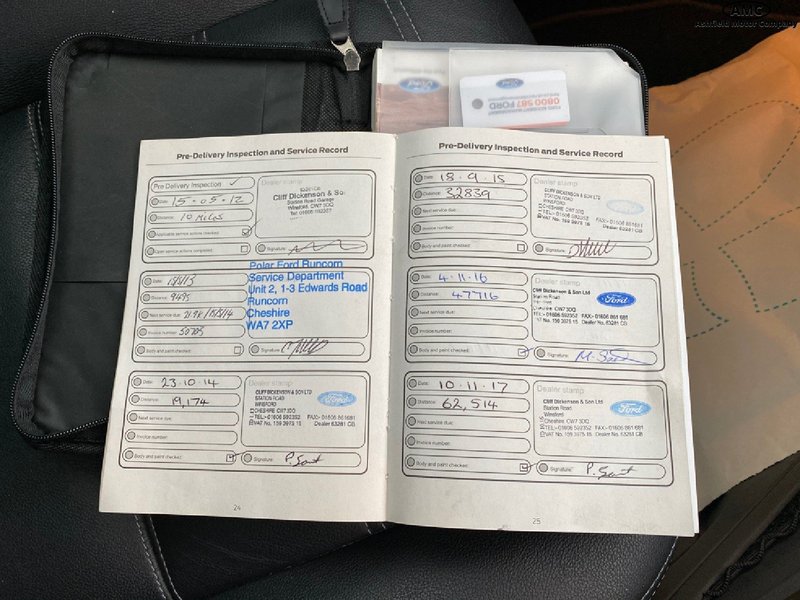 AMC
Ashfield Motor Company
Ford
Ford
0800 587 FORD
Pre-Delivery Inspection and Service Record
Pre Delivery Inspection ✓
Date: 15-05-12
Distance: 10 MILES
Applicable service actions checked:
Open service actions completed:
Dealer stamp
Cliff Dickenson & So
Station Road Garage
Winsford, CW7 3DQ
Signature:
Date: 15/5/13
Distance: 9495
Next service due: 21.9K/15/5/14
Invoice number: 50705
Body and paint checked:
Polar Ford Runcorn
Service Department
Unit 2, 1-3 Edwards Road
Runcorn
Cheshire
WA7 2XP
Signature:
Date: 23.10.14
Distance: 19,174
Next service due:
Invoice number:
Body and paint checked:
Dealer stamp
CLIFF DICKENSON & SON LTD
STATION ROAD
WINSFORD
CHESHIRE CW7 3DQ
TEL:- 01606 592352 FAX:- 01606 861681
VAT No. 159 3975 15 Dealer 63281 CB
Ford
Signature:
24
Pre-Delivery Inspection and Service Record
Date: 18.9.15
Distance: 32839
Next service due:
Invoice number:
Body and paint checked:
Dealer stamp
CLIFF DICKENSON & SON LTD
STATION ROAD
WINSFORD
CHESHIRE CW7 3DQ
Signature:
Date: 4.11.16
Distance: 47716
Next service due:
Invoice number:
Body and paint checked:
Dealer stamp
Cliff Dickenson & Son Ltd
Station Road
Winsford
Cheshire CW7 3DQ
TEL:- 01606 592352 FAX:- 01606 861 681
VAT No. 159 3975 15 Dealer No. 63281 CB
Ford
Signature:
Date: 10.11.17
Distance: 62,514
Next service due:
Invoice number:
Body and paint checked:
Dealer stamp
Cliff Dickenson & Son Ltd
Station Road
Winsford
Cheshire CW7 3DQ
TEL:- 01606 592352 FAX:- 01606 861 681
VAT No. 159 3975 15 Dealer No. 63281 CB
Ford
Signature:
25